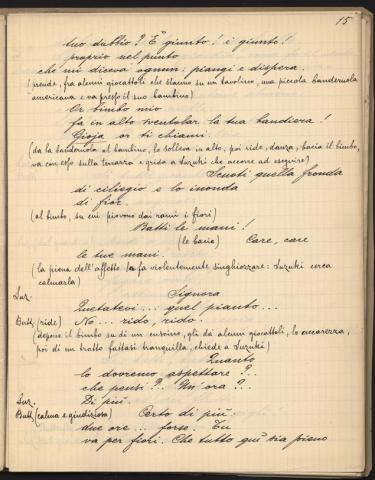 15
tuo dubbio? È giunto! è giunto!
proprio nel punto
che mi diceva ognun: piangi e dispera.
(prende, fra alcuni giocattoli che stanno su un tavolino, una piccola banderuola
americana e va presso il suo bambino)
Or bimbo mio
fa in alto sventolar la tua bandiera!
Gioja or ti chiami.
(dà la banderuola al bambino, lo solleva in alto, poi ride, danza, bacia il bimbo,
va con esso sulla terrazza e grida a Suzuki che accorre ad eseguire)
Scuoti quella fronda
di ciliegio e lo inonda
di fior.
(al bimbo, su cui piovono dai rami i fiori)
Batti le mani!
(le bacia) Care, care
le tue mani.
(la piena dell'affetto la fa violentemente singhiozzare: Suzuki cerca
calmarla)
Suz. Signora
Quetatevi... quel pianto...
Butt. (ride) No... rido, rido!
(depone il bimbo su di un cuscino, gli dà alcuni giocattoli, lo accarezza,
poi di un tratto fattasi tranquilla, chiede a Suzuki)
Quanto
lo dovremo aspettare?...
che pensi?.. Un'ora?..
Suz. Di più.
Butt. (calma e giudiziosa) Certo di più
due ore... forse. Tu
va per fiori. Che tutto quì sia pieno